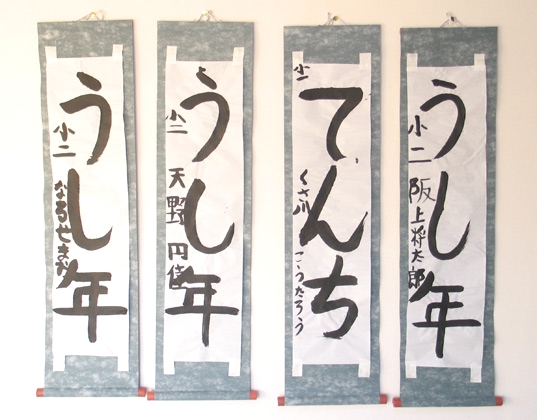 うし年
小二
なるせまお
うし年
小二
天野円佳
てんち
小一
くさ川こうたろう
うし年
小二
阪上将太郎